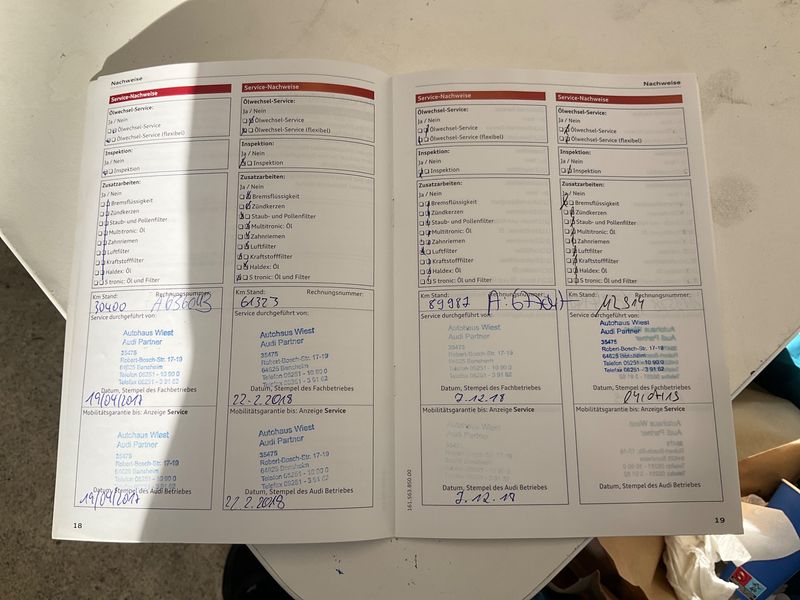 Nachweise
Service-Nachweise
Ölwechsel-Service:
Ja / Nein
Ölwechsel-Service
Ölwechsel-Service (flexibel)
Inspektion:
Ja / Nein
Inspektion
Zusatzarbeiten:
Ja / Nein
Bremsflüssigkeit
Zündkerzen
Staub- und Pollenfilter
Multitronic: Öl
Zahnriemen
Luftfilter
Kraftstofffilter
Haldex: Öl
S tronic: Öl und Filter
Km Stand: Rechnungsnummer:
30400
Service durchgeführt von:
Autohaus Wiest
Audi Partner
35475
Robert-Bosch-Str. 17-19
64625 Bensheim
Telefon 06251 - 10 90 0
Telefax 06251 - 3 91 62
Datum, Stempel des Fachbetriebes
19/04/2017
Mobilitätsgarantie bis: Anzeige Service
Autohaus Wiest
Audi Partner
35475
Robert-Bosch-Str. 17-19
64625 Bensheim
Telefon 06251 - 10 90 0
Telefax 06251 - 3 91 62
Datum, Stempel des Audi Betriebes
19/04/2017
18
Service-Nachweise
Ölwechsel-Service:
Ja / Nein
Ölwechsel-Service
Ölwechsel-Service (flexibel)
Inspektion:
Ja / Nein
Inspektion
Zusatzarbeiten:
Ja / Nein
Bremsflüssigkeit
Zündkerzen
Staub- und Pollenfilter
Multitronic: Öl
Zahnriemen
Luftfilter
Kraftstofffilter
Haldex: Öl
S tronic: Öl und Filter
Km Stand: Rechnungsnummer:
61323
Service durchgeführt von:
Autohaus Wiest
Audi Partner
35475
Robert-Bosch-Str. 17-19
64625 Bensheim
Telefon 06251 - 10 90 0
Telefax 06251 - 3 91 62
Datum, Stempel des Fachbetriebes
22.2.2018
Mobilitätsgarantie bis: Anzeige Service
Autohaus Wiest
Audi Partner
35475
Robert-Bosch-Str. 17-19
64625 Bensheim
Telefon 06251 - 10 90 0
Telefax 06251 - 3 91 62
Datum, Stempel des Audi Betriebes
22.2.2018
Nachweise
Service-Nachweise
Ölwechsel-Service:
Ja / Nein
Ölwechsel-Service
Ölwechsel-Service (flexibel)
Inspektion:
Ja / Nein
Inspektion
Zusatzarbeiten:
Ja / Nein
Bremsflüssigkeit
Zündkerzen
Staub- und Pollenfilter
Multitronic: Öl
Zahnriemen
Luftfilter
Kraftstofffilter
Haldex: Öl
S tronic: Öl und Filter
Km Stand: Rechnungsnummer:
89987
Service durchgeführt von:
Autohaus Wiest
Audi Partner
35475
Robert-Bosch-Str. 17-19
64625 Bensheim
Telefon 06251 - 10 90 0
Telefax 06251 - 3 91 62
Datum, Stempel des Fachbetriebes
7.12.18
Mobilitätsgarantie bis: Anzeige Service
Autohaus Wiest
Audi Partner
35475
Robert-Bosch-Str. 17-19
64625 Bensheim
Telefon 06251 - 10 90 0
Telefax 06251 - 3 91 62
Datum, Stempel des Audi Betriebes
7.12.18
161.563.850.00
Service-Nachweise
Ölwechsel-Service:
Ja / Nein
Ölwechsel-Service
Ölwechsel-Service (flexibel)
Inspektion:
Ja / Nein
Inspektion
Zusatzarbeiten:
Ja / Nein
Bremsflüssigkeit
Zündkerzen
Staub- und Pollenfilter
Multitronic: Öl
Zahnriemen
Luftfilter
Kraftstofffilter
Haldex: Öl
S tronic: Öl und Filter
Km Stand: Rechnungsnummer:
Service durchgeführt von:
Autohaus Wiest
Audi Partner
35475
Robert-Bosch-Str. 17-19
64625 Bensheim
Telefon 06251 - 10 90 0
Telefax 06251 - 3 91 62
Datum, Stempel des Fachbetriebes
Mobilitätsgarantie bis: Anzeige Service
Datum, Stempel des Audi Betriebes
19